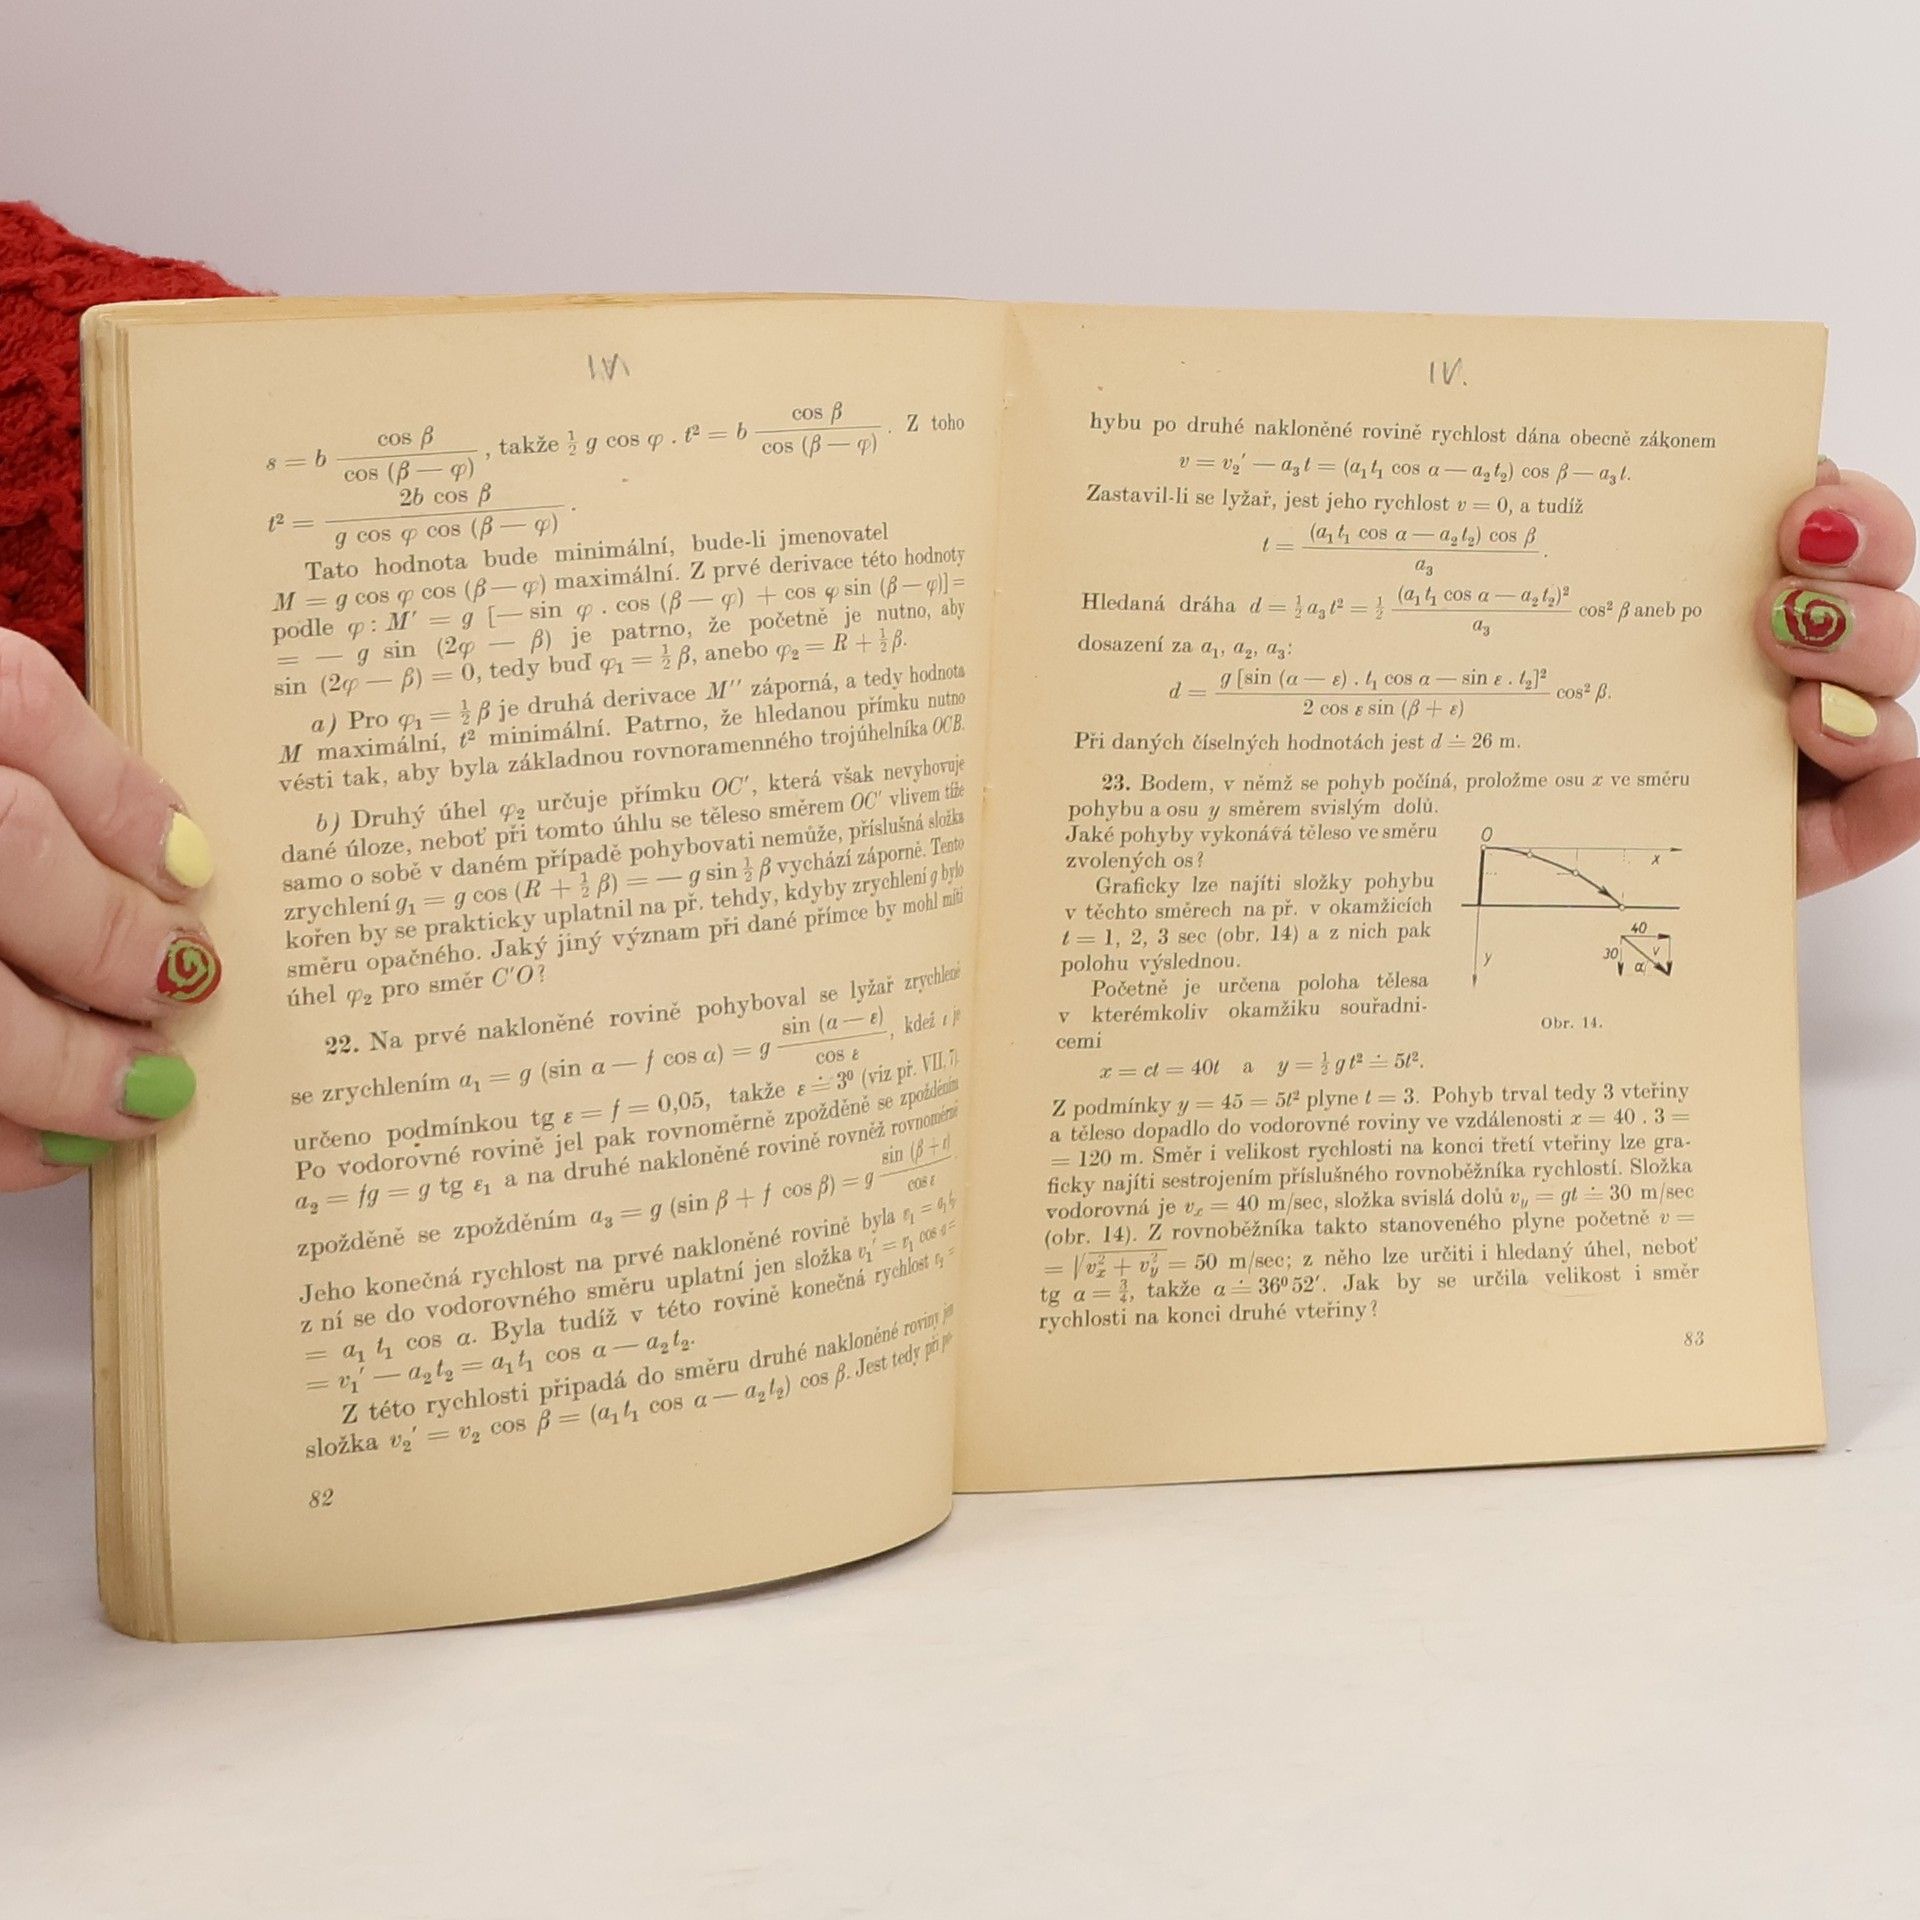 IV.
s = b cos β / cos (β — φ) , takže ½ g cos φ . t² = b cos β / cos (β — φ) . Z toho
t² = 2b cos β / g cos φ cos (β — φ) .
Tato hodnota bude minimální, bude-li jmenovatel
M = g cos φ cos (β — φ) maximální. Z prvé derivace této hodnoty
podle φ : M′ = g [— sin φ . cos (β — φ) + cos φ sin (β — φ)] =
= — g sin (2φ — β) je patrno, že početně je nutno, aby
sin (2φ — β) = 0, tedy buď φ₁ = ½ β, anebo φ₂ = R + ½ β.
a) Pro φ₁ = ½ β je druhá derivace M″ záporná, a tedy hodnota
M maximální, t² minimální. Patrno, že hledanou přímku nutno
vésti tak, aby byla základnou rovnoramenného trojúhelníka OCB.
b) Druhý úhel φ₂ určuje přímku OC′, která však nevyhovuje
dané úloze, neboť při tomto úhlu se těleso směrem OC′ vlivem tíže
samo o sobě v daném případě pohybovati nemůže, příslušná složka
zrychlení g₁ = g cos (R + ½ β) = — g sin ½ β vychází záporně. Tento
kořen by se prakticky uplatnil na př. tehdy, kdyby zrychlení g bylo
směru opačného. Jaký jiný význam při dané přímce by mohl míti
úhel φ₂ pro směr C′O?
22. Na prvé nakloněné rovině pohyboval se lyžař zrychleně
se zrychlením a₁ = g (sin α — f cos α) = g sin (α — ε) / cos ε , kdež ε je
určeno podmínkou tg ε = f = 0,05, takže ε ≐ 3⁰ (viz př. VII, 7).
Po vodorovné rovině jel pak rovnoměrně zpožděně se zpožděním
a₂ = fg = g tg ε₁ a na druhé nakloněné rovině rovněž rovnoměrně
zpožděně se zpožděním a₃ = g (sin β + f cos β) = g sin (β + ε) / cos ε .
Jeho konečná rychlost na prvé nakloněné rovině byla v₁ = a₁t₁,
z ní se do vodorovného směru uplatní jen složka v₁′ = v₁ cos α =
= a₁ t₁ cos α. Byla tudíž v této rovině konečná rychlost v₂ =
= v₁′ — a₂t₂ = a₁t₁ cos α — a₂t₂.
Z této rychlosti připadá do směru druhé nakloněné roviny jen
složka v₂′ = v₂ cos β = (a₁t₁ cos α — a₂t₂) cos β. Jest tedy při po-
82
IV.
hybu po druhé nakloněné rovině rychlost dána obecně zákonem
v = v₂′ — a₃t = (a₁t₁ cos α — a₂t₂) cos β — a₃t.
Zastavil-li se lyžař, jest jeho rychlost v = 0, a tudíž
t = (a₁t₁ cos α — a₂t₂) cos β / a₃ .
Hledaná dráha d = ½ a₃t² = ½ (a₁t₁ cos α — a₂t₂)² / a₃ cos² β aneb po
dosazení za a₁, a₂, a₃:
d = g [sin (α — ε) . t₁ cos α — sin ε . t₂]² / 2 cos ε sin (β + ε) cos² β.
Při daných číselných hodnotách jest d ≐ 26 m.
23. Bodem, v němž se pohyb počíná, proložme osu x ve směru
pohybu a osu y směrem svislým dolů.
Jaké pohyby vykonává těleso ve směru
zvolených os?
Graficky lze najíti složky pohybu
v těchto směrech na př. v okamžicích
t = 1, 2, 3 sec (obr. 14) a z nich pak
polohu výslednou.
Početně je určena poloha tělesa
v kterémkoliv okamžiku souřadni-
cemi
O
x
y
40
30
v
α
Obr. 14.
x = ct = 40t a y = ½ gt² ≐ 5t².
Z podmínky y = 45 = 5t² plyne t = 3. Pohyb trval tedy 3 vteřiny
a těleso dopadlo do vodorovné roviny ve vzdálenosti x = 40 . 3 =
= 120 m. Směr i velikost rychlosti na konci třetí vteřiny lze gra-
ficky najíti sestrojením příslušného rovnoběžníka rychlostí. Složka
vodorovná je vₓ = 40 m/sec, složka svislá dolů v_y = gt ≐ 30 m/sec
(obr. 14). Z rovnoběžníka takto stanoveného plyne početně v =
= √(vₓ² + v_y²) = 50 m/sec; z něho lze určiti i hledaný úhel, neboť
tg α = ¾, takže α ≐ 36⁰ 52′. Jak by se určila velikost i směr
rychlosti na konci druhé vteřiny?
83